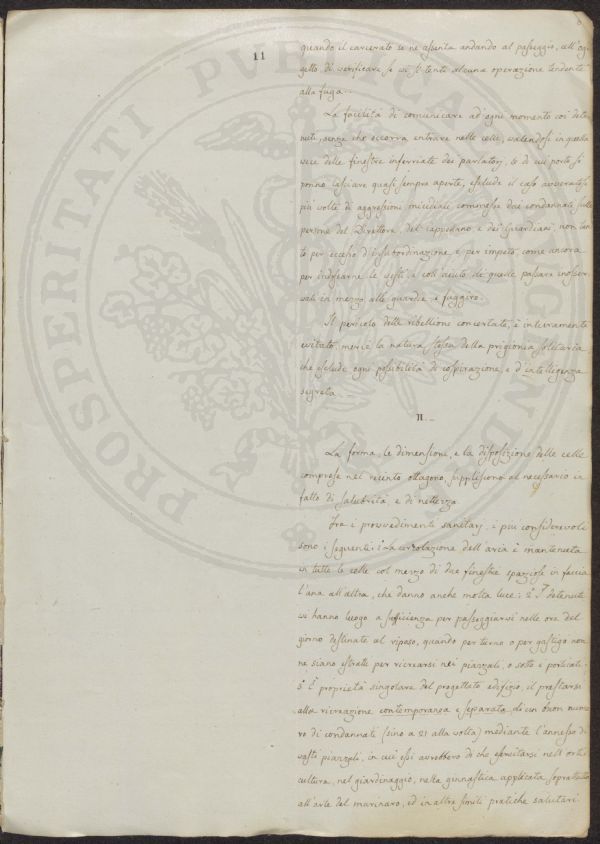 11
quando il carcerato se ne assenta andando al passeggio, coll'og
getto di verificare se vi si tenti alcuna operazione tendente
alla fuga.
La facilità di comunicare ad ogni momento coi dete-
nuti, senza che occorra entrare nelle celle, valendosi in quella
vece delle finestre inferriate dei parlatorj, le di cui porte si
ponno lasciare quasi sempre aperte, esclude il caso avveratosi
più volte di aggressioni micidiali commesse dai condannati sulle
persone del Direttore, del cappellano e dei Guardiani, non tan
to per eccesso d'insubordinazione e per impeto, come ancora
per involarne le vesti, e coll'aiuto di quelle passare inosser
vati in mezzo alle guardie e fuggire.
Il pericolo delle ribellioni concertate, è interamente
evitato mercè la natura stessa della prigionia solitaria
che esclude ogni possibilità di cospirazione, e d'intelligenza
segreta.
II.
La forma, le dimensioni, e la disposizione delle celle
comprese nel recinto ottagono, suppliscono al necessario in
fatto di salubrità, e di nettezza.
Tra i provvedimenti sanitarj i più considerevoli
sono i seguenti: 1° La circolazione dell'aria è mantenuta
in tutte le celle col mezzo di due finestre spaziose in faccia
l'una all'altra, che danno anche molta luce; 2° I detenuti
vi hanno luogo a sufficienza per passeggiarvi nelle ore del
giorno destinate al riposo, quando per turno o per gastigo non
ne siano estratti per ricrearsi nei piazzali, o sotto i porticati.
3° È proprietà singolare del progettato edifizio, il prestarsi
alla ricreazione contemporanea e separata di un buon nume
ro di condannati (sino a 21 alla volta) mediante l'annesso di
vasti piazzali, in cui essi avrebbero di che esercitarsi nell'orti
cultura, nel giardinaggio, nella ginnastica applicata soprattutto
all'arte del marinaro, ed in altre simili pratiche salutari.
PROSPERITATI PVBLICAE